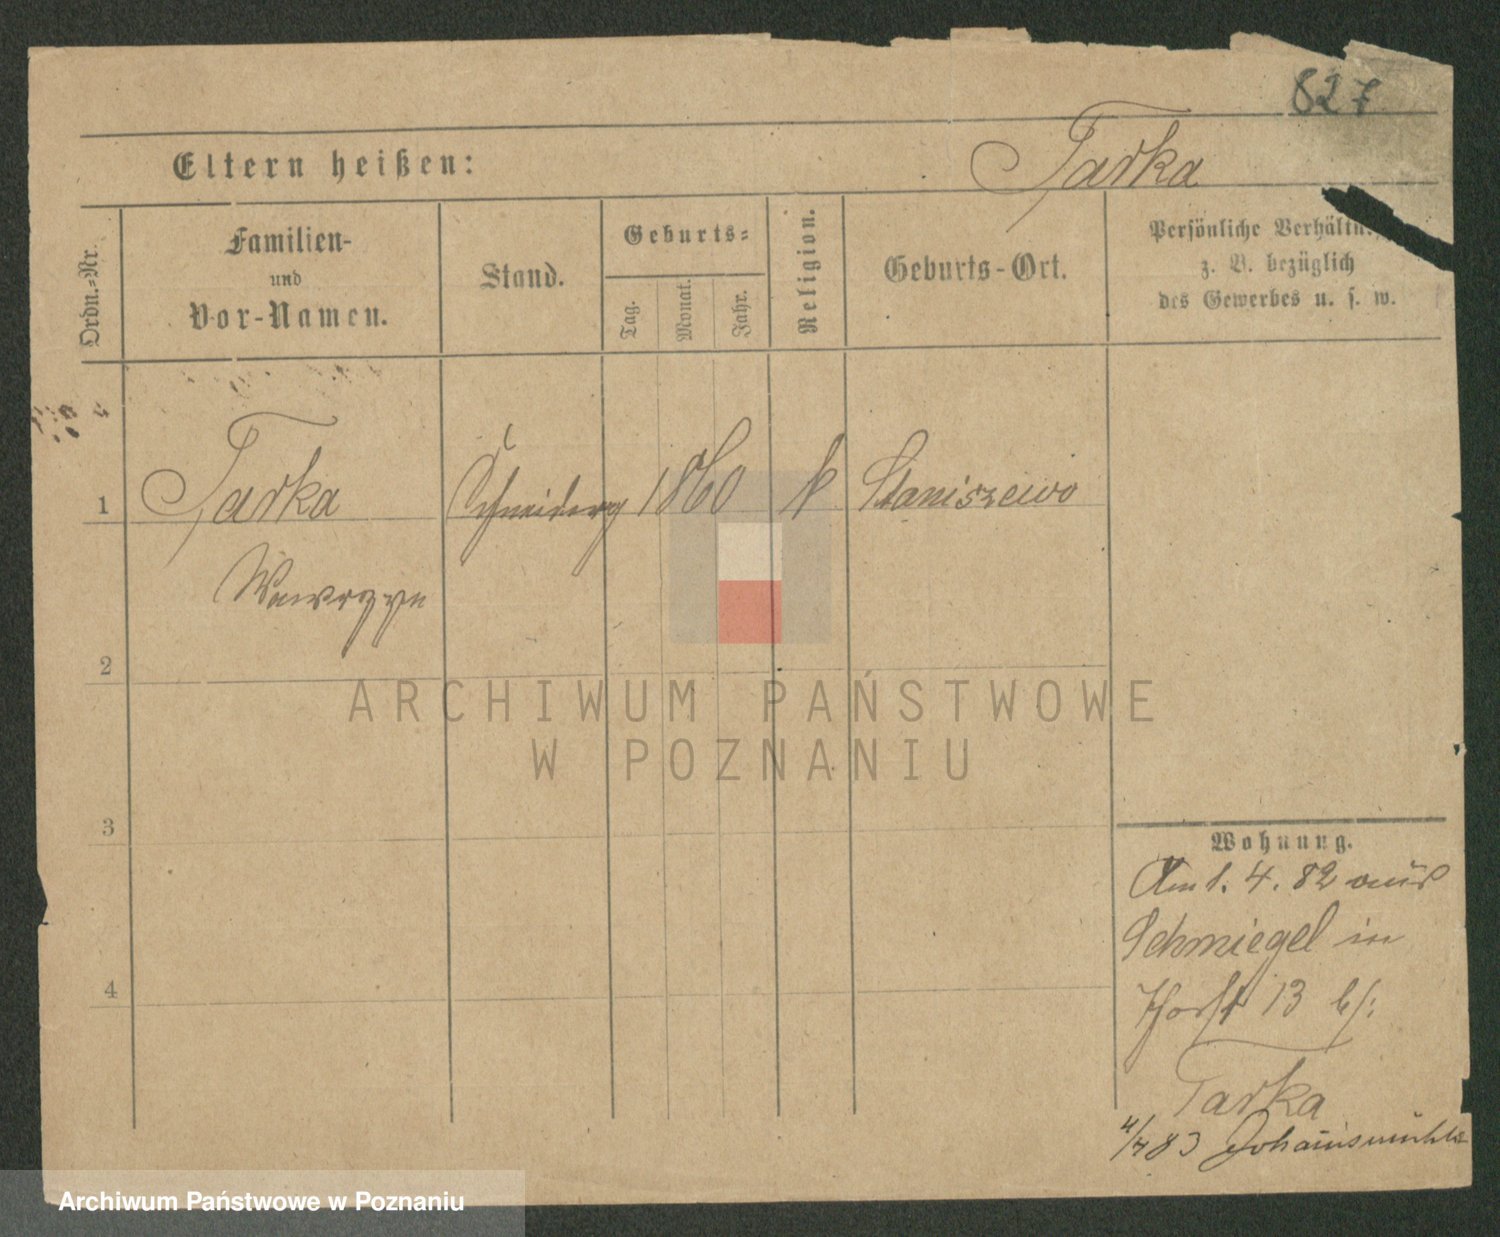 827
Eltern heißen: Tarka
Ordn.-Nr.
Familien-
und
Vor-Namen.
Stand.
Geburts-
Tag.
Monat.
Jahr.
Religion.
Geburts-Ort.
Persönliche Verhältn
z. B. bezüglich
des Gewerbes u. s. w.
1 Tarka 1860 k Staniszewo
Wawrzyn
2
ARCHIWUM PAŃSTWOWE
W POZNANIU
3
Wohnung.
Am 1. 4. 82 aus
Schmiegel in
4
13 bei
Tarka
4/4 83 Johannismühle
Archiwum Państwowe w Poznaniu